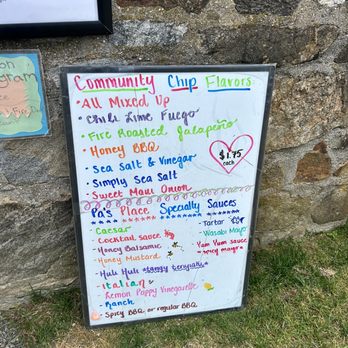 Community Chip Flavors
All Mixed Up
Chili Lime Fuego
Fire Roasted Jalapeño
Honey BBQ
$1.75
each
Sea Salt & Vinegar
Simply Sea Salt
Sweet Maui Onion
Pa's Place Specialty Sauces
Caesar
Cocktail Sauce
Honey Balsamic
Honey Mustard
Huli Huli teriyaki
Italian
Lemon Poppy Vinegarette
Ranch
Spicy BBQ or regular BBQ
Tartar
Wasabi Mayo
Yum Yum sauce
spicy mayo